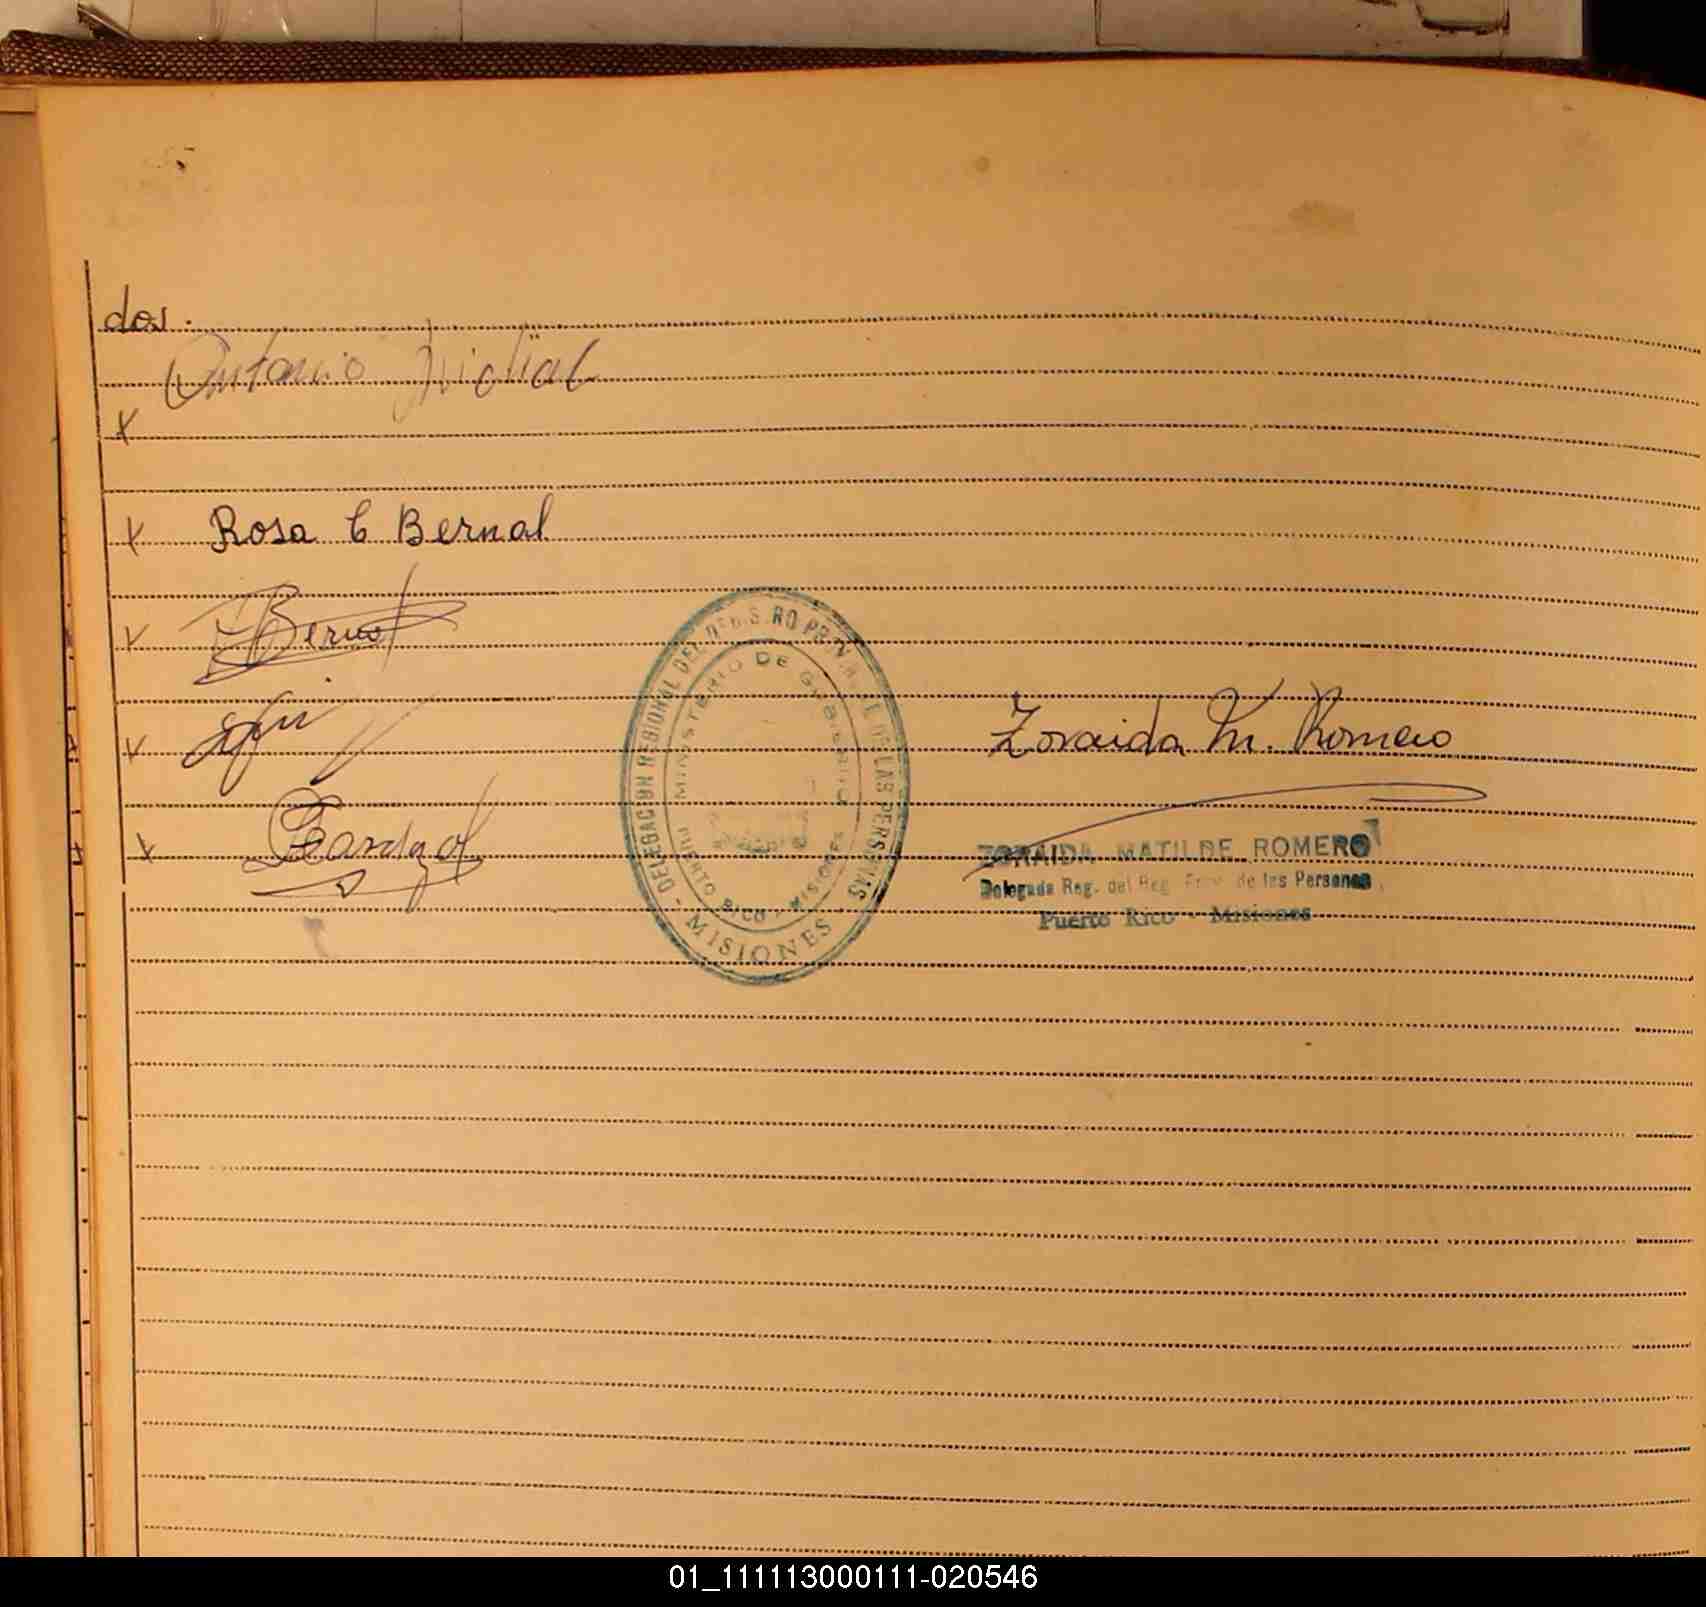 dos.
Antonio
x
x Rosa C Bernal
x Bernal
x
Zoraida M. Romero
x
DELEGACION REGIONAL DEL REGISTRO PROVINCIAL DE LAS PERSONAS
MINISTERIO DE GOBIERNO
PUERTO RICO - MISIONES
- MISIONES -
ZORAIDA MATILDE ROMERO
Delegada Reg. del Reg. Prov. de las Personas
Puerto Rico - Misiones
01_111113000111-020546